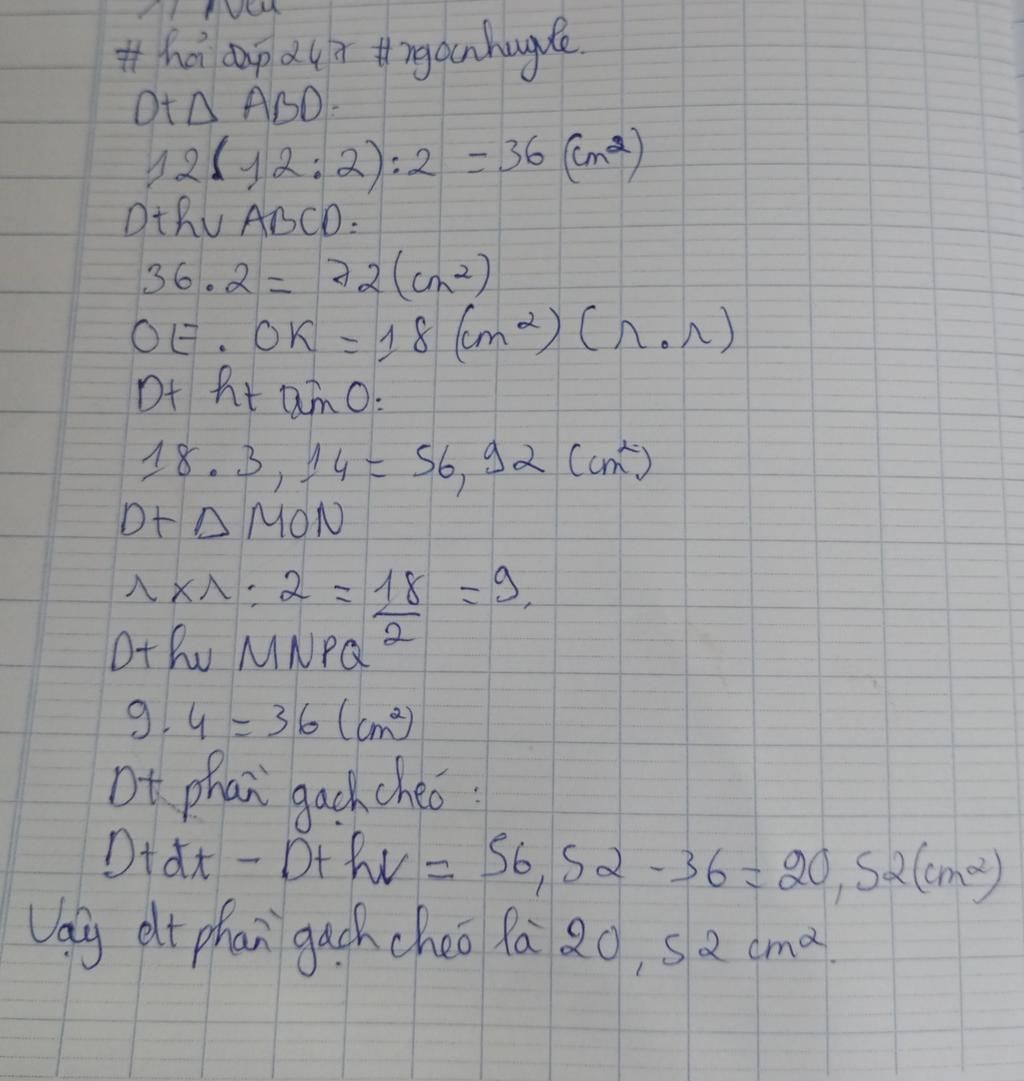 # hỏi đáp 247 #ngocnhugle.
Dt Δ ABD:
12(12:2):2 = 36 (cm²)
Dt hv ABCD:
36.2 = 72 (cm²)
OE. OK = 18 (cm²) (r.r)
Dt ht tâm O:
18.3,14 = 56,92 (cm²)
Dt Δ MON
r x r : 2 = 18/2 = 9.
Dt hv MNPQ
9.4 = 36 (cm²)
Dt phần gạch chéo :
Dt đt - Dt hv = 56,52 - 36 = 20,52 (cm²)
Vậy dt phần gạch chéo là 20,52 cm².